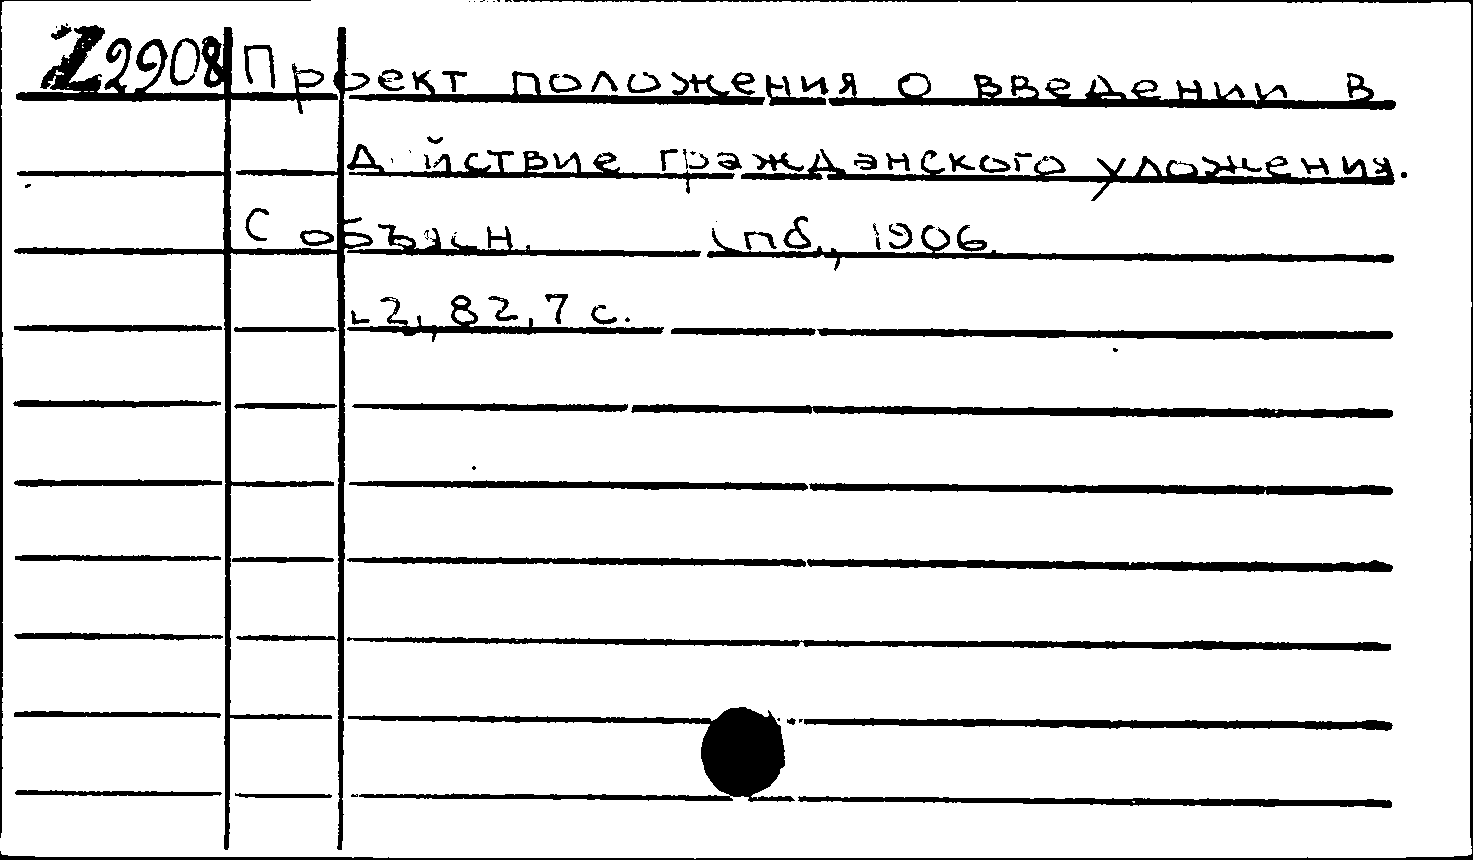 Z2908 Проект положения о введении в
действие гражданского уложения.
С объясн. Спб., 1906.
2, 82, 7 с.